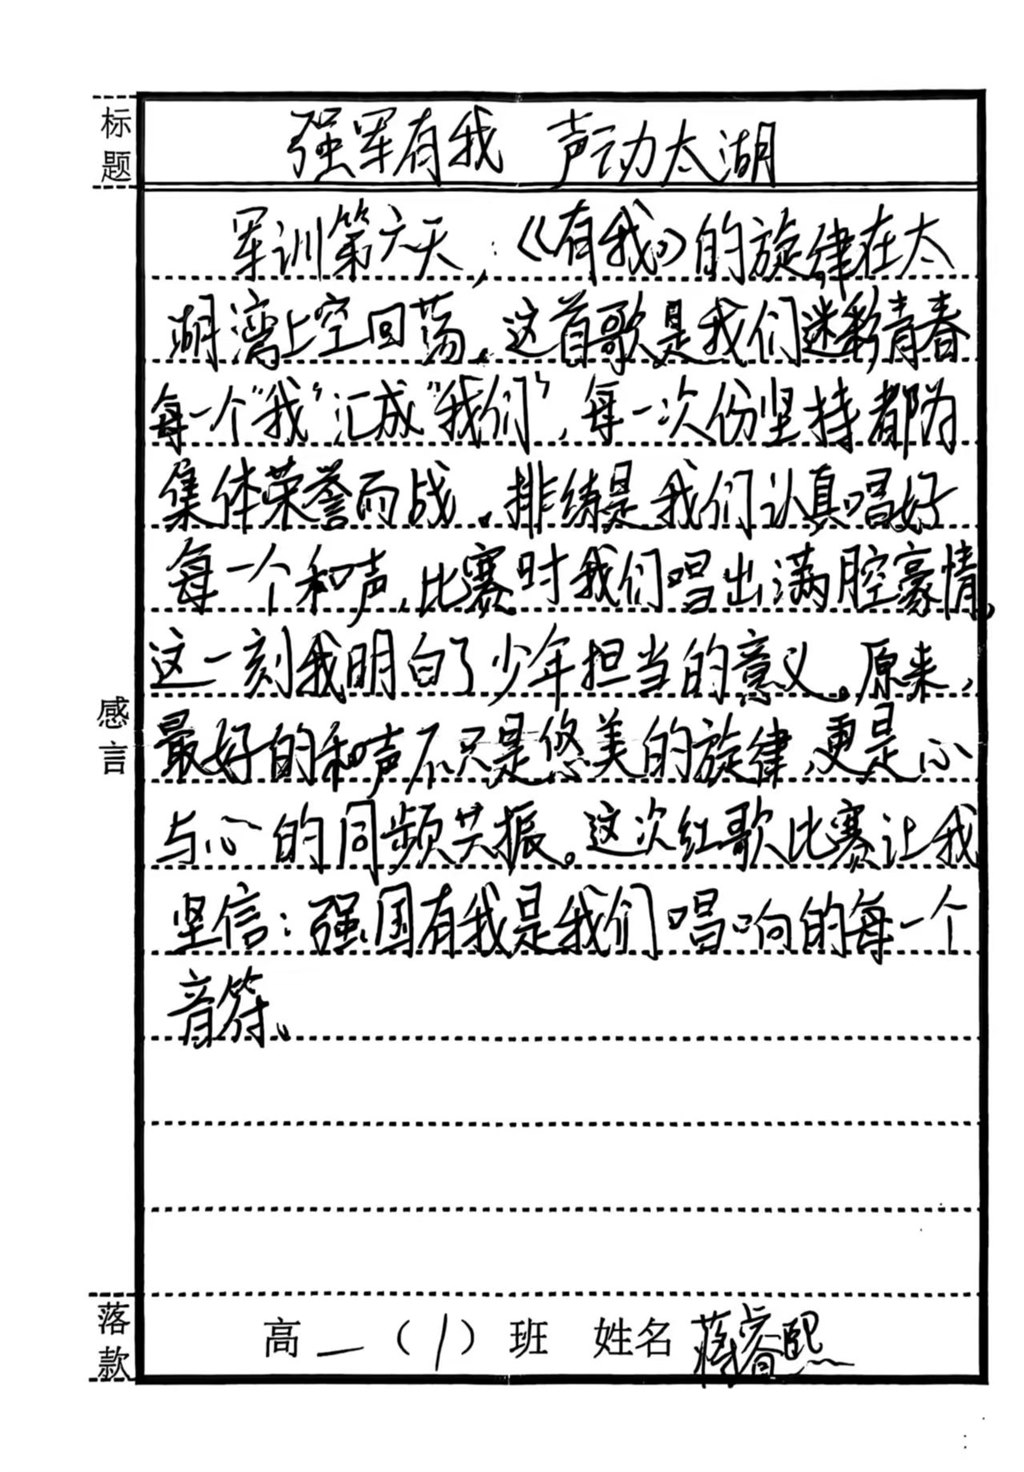 标题
强军有我 声动太湖
军训第六天，《有我》的旋律在太
湖湾上空回荡。这首歌是我们迷彩青春
每一个“我”汇成“我们”，每一次份坚持都为
集体荣誉而战。排练是我们认真唱好
每一个和声，比赛时我们唱出满腔豪情。
这一刻我明白了少年担当的意义。原来，
最好的和声不只是悠美的旋律，更是心
与心的同频共振。这次红歌比赛让我
坚信：强国有我是我们唱响的每一个
音符。
感言
落款
高一（1）班 姓名 蒋睿熙